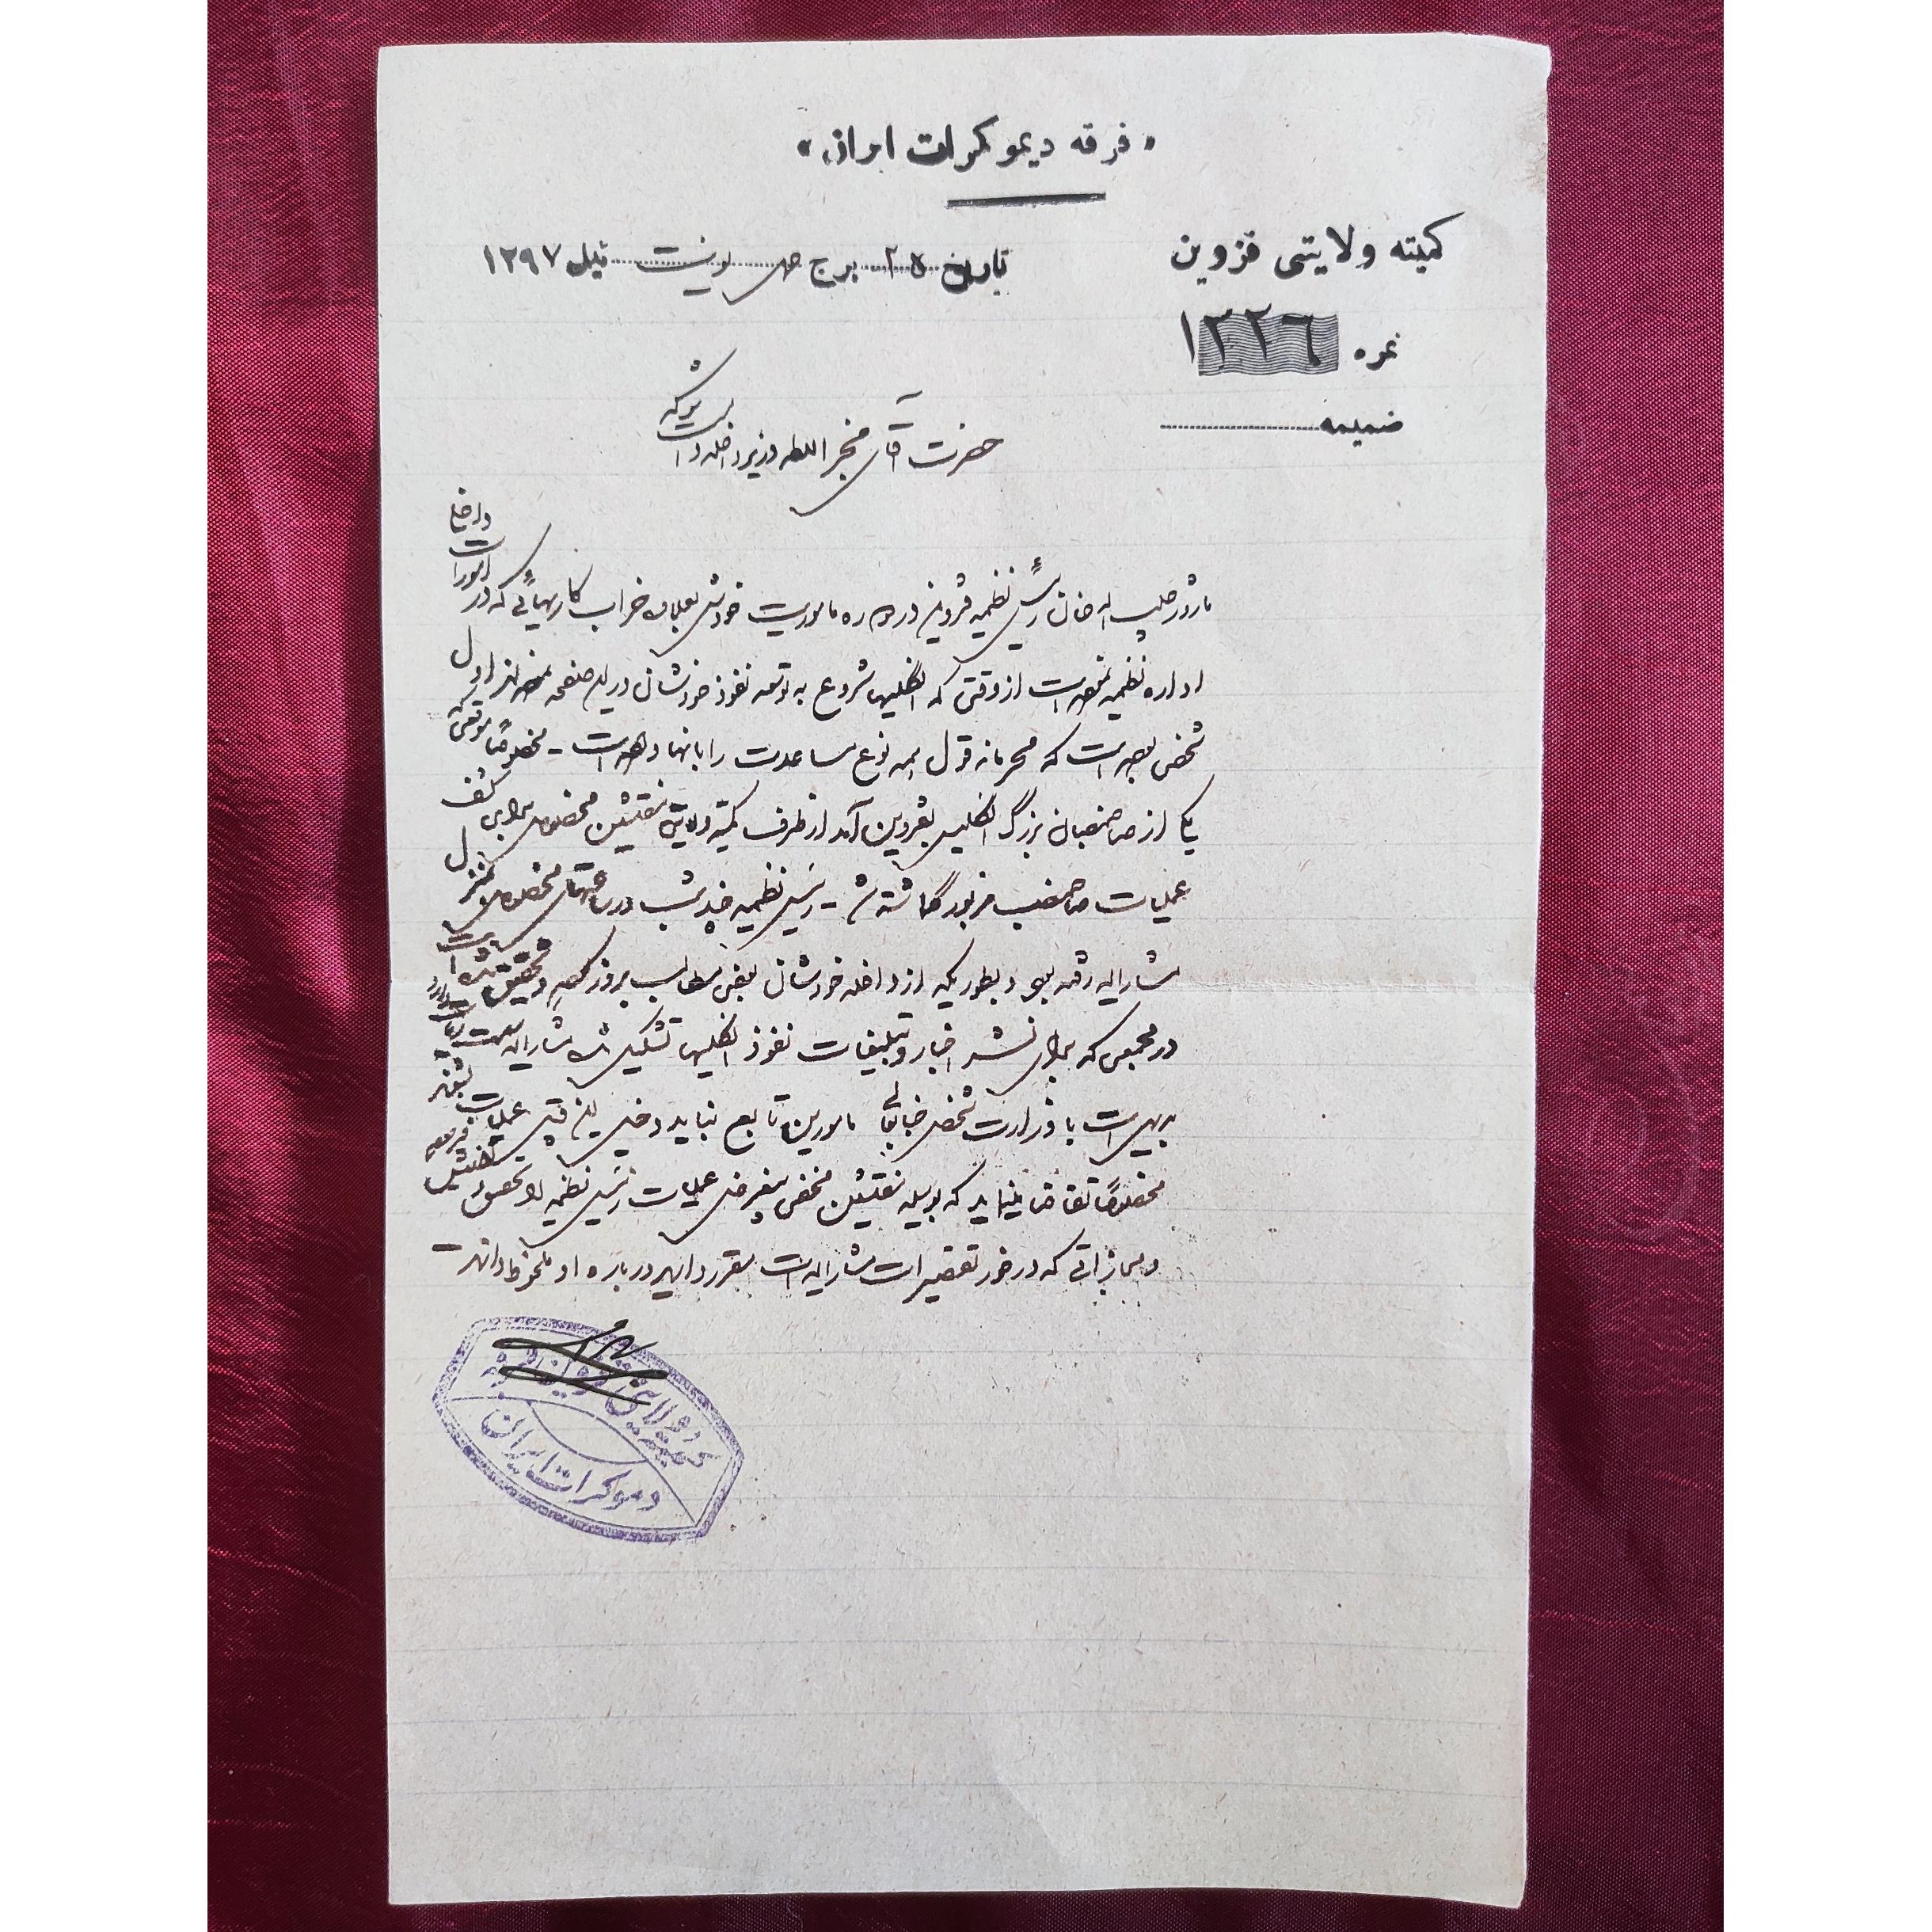 « فرقه دیموکرات ایران »
کمیته ولایتی قزوین
تاریخ ۲۵ برج حمل یونت ئیل ۱۲۹۷
نمره ۱۳۲٦
ضمیمه
حضرت آقای وزیر داخله دامت شوکته
خان رئیس نظمیه قزوین در دوره ماموریت خودش بعلاوه خراب کاریهائی که در امورات داخلی
اداره نظمیه نموده است از وقتی که انگلیسها شروع به توسعه نفوذ خودشان در این صفحه نموده‌اند اول
شخصی بوده است که محرمانه قول همه نوع مساعدت را بآنها داده است - مخصوصاً موقعی که
یکی از صاحمنصبان بزرگ انگلیس بقزوین آمد از طرف کمیته ولایتی مفتشین مخصوص برای کشف
عملیات صاحمنصب مزبور گماشته شد - رئیس نظمیه چند شب در ساعتهای مخصوص منزل
مشارالیه رفته بود و بطوریکه از داخله خودشان بعضی مطالب بروز کرده و تحقیق شده است
در مجمعی که برای نشر اخبار و تبلیغات نفوذ انگلیسها تشکیل شده مشارالیه سمت ریاست دارد
بدیهی است با وزارت شخص جنابعالی مامورین تابع نباید دخیل این قبیل عملیات بشوند
مخصوصاً تقاضا مینماید که بوسیله مفتشین مخفی بیغرض عملیات رئیس نظمیه را تفتیش فرموده
و بمجازاتی که در خور تقصیرات مشارالیه است مقرر دارید درباره او ملحوظ دارند -
کمیته ولایتی قزوین فرقه
دموکرات ایران